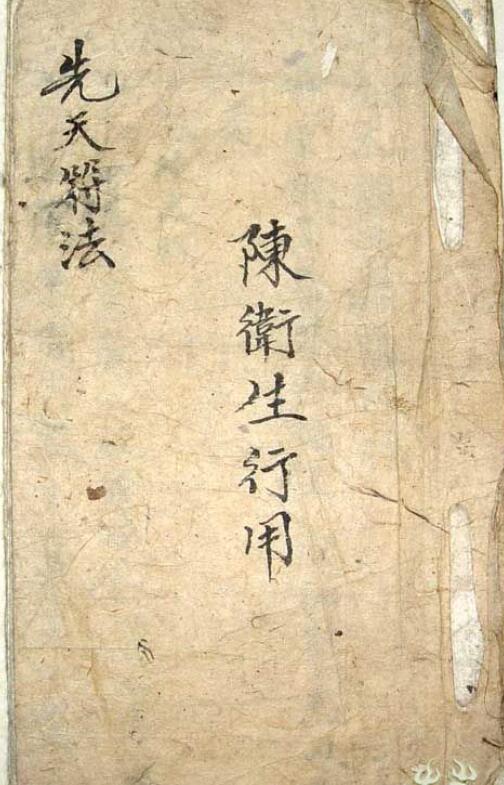 先天符法
陳衛生行用